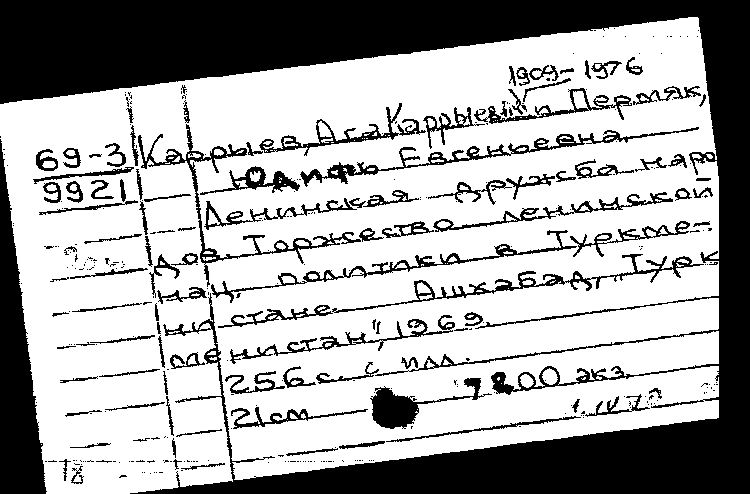 1909-1976
69-3 Каррыев, Ага Каррыевич и Пермяк,
9921 Юдифь Евгеньевна.
Ленинская дружба наро
дов. Торжество ленинской
нац. политики в Туркме-
нистане. Ашхабад, "Турк
менистан", 1969.
256 с. с илл.
21 см 7200 экз.
18